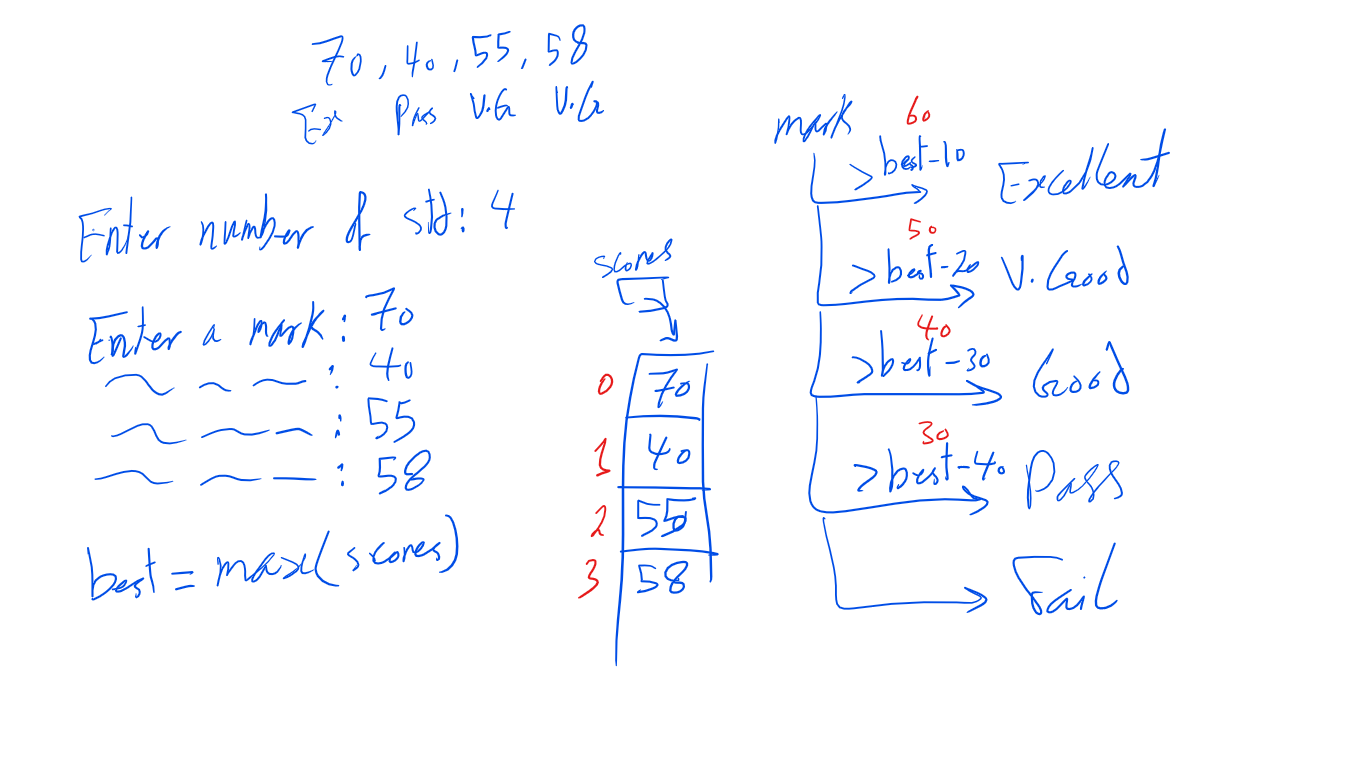 70, 40, 55, 58
Ex Pass V.G V.G
Enter number of std: 4
Enter a mark: 70
: 40
: 55
: 58
best = max(scores)
scores
0 70
1 40
2 55
3 58
mark
60
>best-10 Excellent
50
>best-20 V.Good
40
>best-30 Good
30
>best-40 Pass
Fail